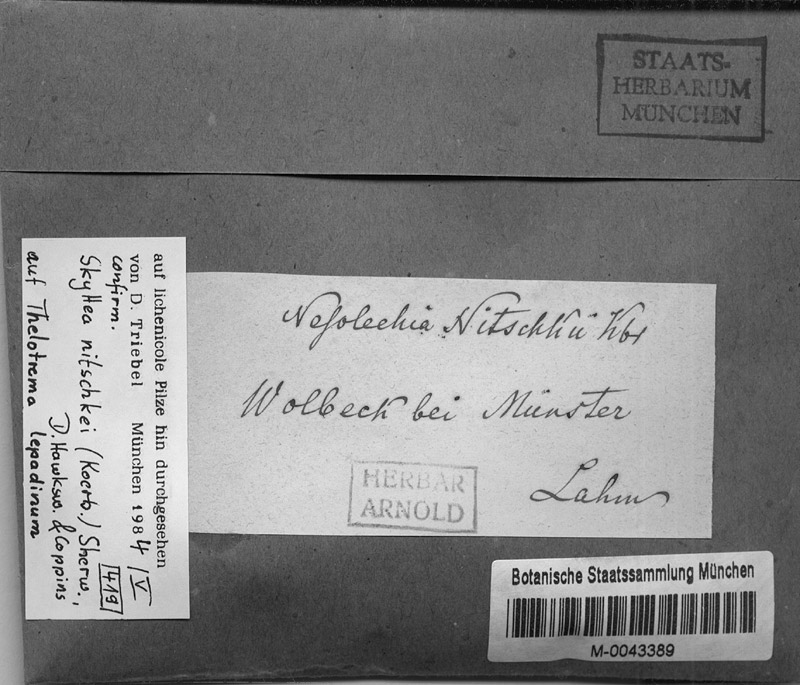 STAATS-
HERBARIUM
MÜNCHEN
auf lichenicole Pilze hin durchgesehen
von D. Triebel München 1984/V
confirm. 419
Skyttea nitschkei (Koerb.) Sherw.,
D. Hawksw. & Coppins
auf Thelotrema lepadinum
Nesolechia Nitschkii Kbr
Wolbeck bei Münster
Lahm
HERBAR
ARNOLD
Botanische Staatssammlung München
M-0043389